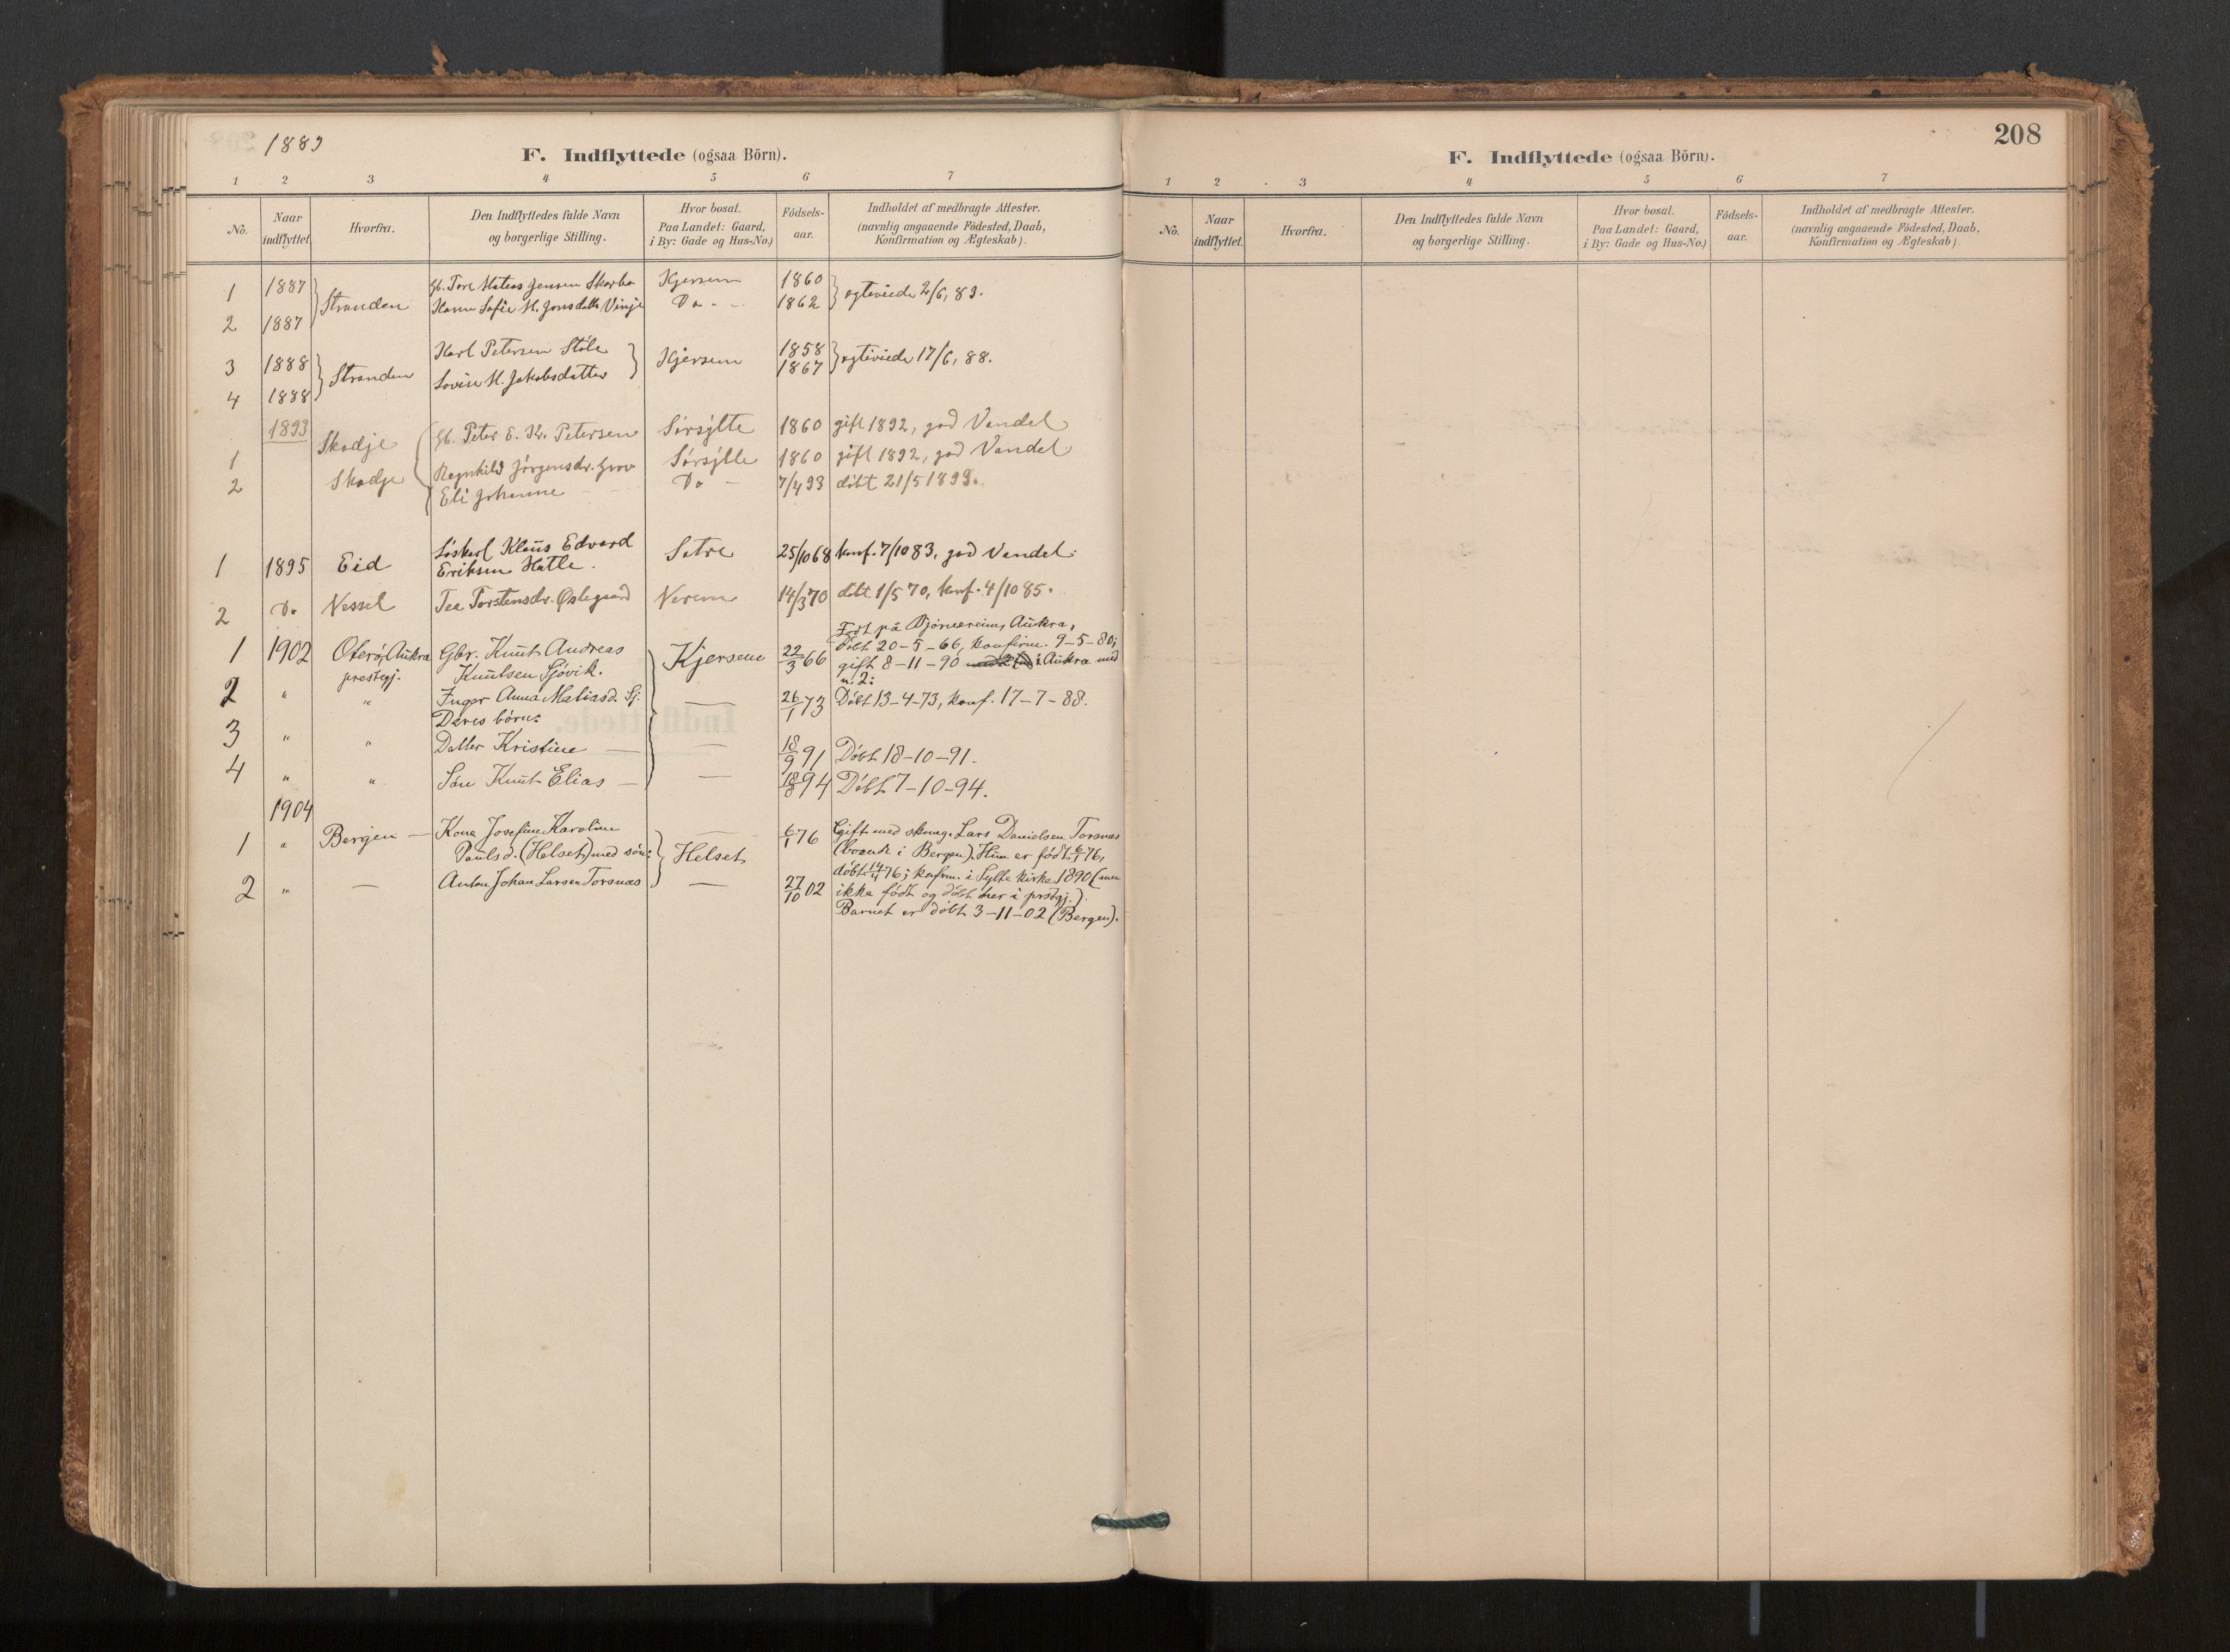 1889
F. Indflyttede (ogsaa Börn).
1 2 3 4 5 6 7
No. Naar indflyttet. Hvorfra. Den Indflyttedes fulde Navn og borgerlige Stilling. Hvor bosat. Paa Landet: Gaard, i By: Gade og Hus-No.) Födsels-aar. Indholdet af medbragte Attester. (navnlig angaaende Födested, Daab, Konfirmation og Ægteskab).
1 1887 Stranden Gb. Tore Mateas Jensen Skarbø Kjersem 1860 egteviede 2/6, 89.
2 1887 Hanne Sofie M. Jonsdatter Vinje Do - 1862
3 1888 Stranden Karl Petersen Støle Kjersem 1858 egteviede 17/6, 88.
4 1888 Lovise M. Jakobsdatter 1867
1893
1 Skodje Gb. Peter E. Kr. Petersen Sörsylte 1860 gift 1892, god Vandel
2 Skodje Ragnhild Jörgensdr. Grov Sörsylte 1860 gift 1892, god Vandel
Eli Johanne Do - 7/4 93 döbt 21/5 1893.
1 1895 Eid Löskarl Klaus Edvard Eriksen Hatle. Setre 25/10 68 konf. 7/10 83, god Vandel.
2 Do Vessel Tea Torstensdr. Østegaard Nerem 14/3 70 döbt 1/5 70, konf. 4/10 85.
Født på Bjørnereim, Aukra,
1 1902 Oterö, Aukra Gbr. Knut Andreas Kjersem 22/3 66 Döbt 20-5-66, konfirm. 9-5-80;
prestegj. Knutsen Sjövik. gift 8-11-90 i Aukra med
n. 2:
2 " " Inger Anna Matiasd. Sj. — 26/1 73 Döbt 13-4-73, konf. 17-7-88.
Deres börn:
3 " " Datter Kristine — — 18/9 91 Döbt 18-10-91.
4 " " Sön Knut Elias — — 18/8 94 Döbt 7-10-94.
1904
1 " Bergen — Kone Josefine Karoline 6/1 76 Gift med skomg. Lars Danielsen Torsnæs
Paulsd. (Helset) med sön: Helset (boende i Bergen). Hun er födt 6/1 76,
döbt 14/4 76; konfirm. i Sylte kirke 1890 (men
2 " — Anton Johan Larsen Torsnæs — 27/10 02 ikke födt og döbt her i prstgj.).
Barnet er döbt 3-11-02 (Bergen).
208
F. Indflyttede (ogsaa Börn).
1 2 3 4 5 6 7
No. Naar indflyttet. Hvorfra. Den Indflyttedes fulde Navn og borgerlige Stilling. Hvor bosat. Paa Landet: Gaard, i By: Gade og Hus-No.) Födsels-aar. Indholdet af medbragte Attester. (navnlig angaaende Födested, Daab, Konfirmation og Ægteskab).